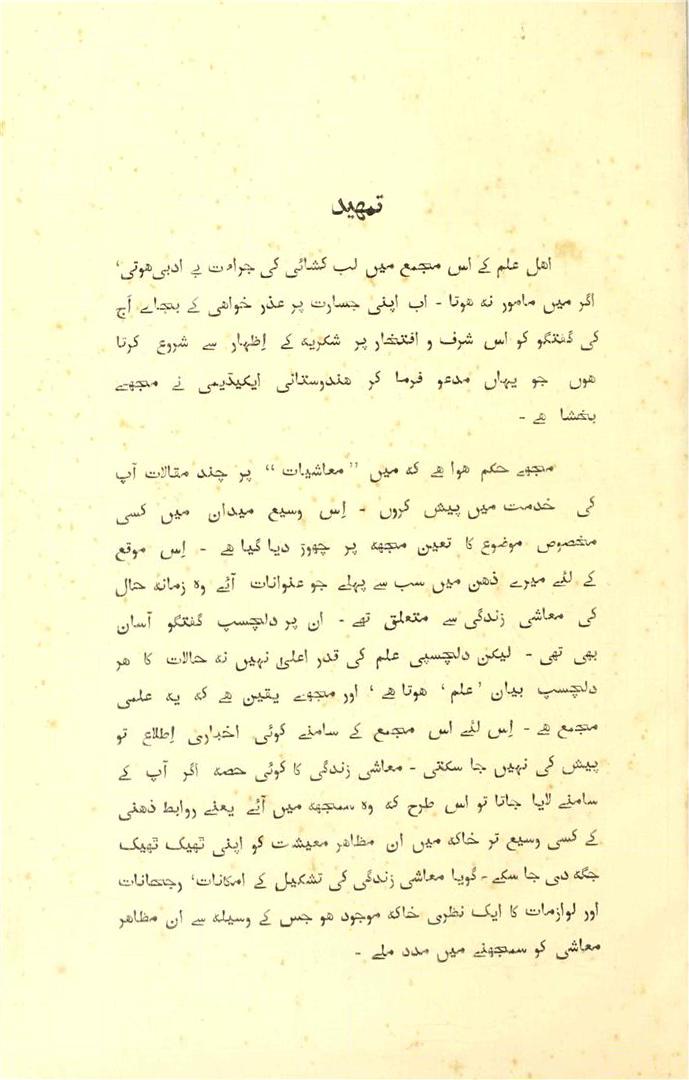 تمہید
اهل علم کے اس مجمع میں لب کشائی کی جراءت بے ادبی هوتی،
اگر میں مامور نه هوتا - اب اپنی جسارت پر عذر خواهی کے بجاے آج
کی گفتگو کو اس شرف و افتخار پر شکریه کے اِظہار سے شروع کرتا
هوں جو یہاں مدعو فرما کر هندوستانی ایکیڈیمی نے مجھے
بخشا هے -
مجھے حکم هوا هے که میں ”معاشیات“ پر چند مقالات آپ
کی خدمت میں پیش کروں - اِس وسیع میدان میں کسی
مخصوص موضوع کا تعین مجھه پر چھوڑ دیا گیا هے - اِس موقع
کے لئے میرے ذهن میں سب سے پہلے جو عنوانات آئے وه زمانه حال
کی معاشی زندگی سے متعلق تھے - ان پر دلچسپ گفتگو آسان
بھی تھی - لیکن دلچسپی علم کی قدر اعلیٰ نہیں نه حالات کا هر
دلچسپ بیان ’علم‘ هوتا هے، اور مجھے یقین هے که یه علمی
مجمع هے - اِس لئے اس مجمع کے سامنے کوئی اخباری اِطلاع تو
پیش کی نہیں جا سکتی - معاشی زندگی کا کوئی حصه اگر آپ کے
سامنے لایا جاتا تو اس طرح که وه سمجھه میں آئے یعنے روابط ذهنی
کے کسی وسیع تر خاکه میں ان مظاهر معیشت کو اپنی ٹھیک ٹھیک
جگه دی جا سکے - گویا معاشی زندگی کی تشکیل کے امکانات، رجحانات
اور لوازمات کا ایک نظری خاکه موجود هو جس کے وسیله سے ان مظاهر
معاشی کو سمجھنے میں مدد ملے -